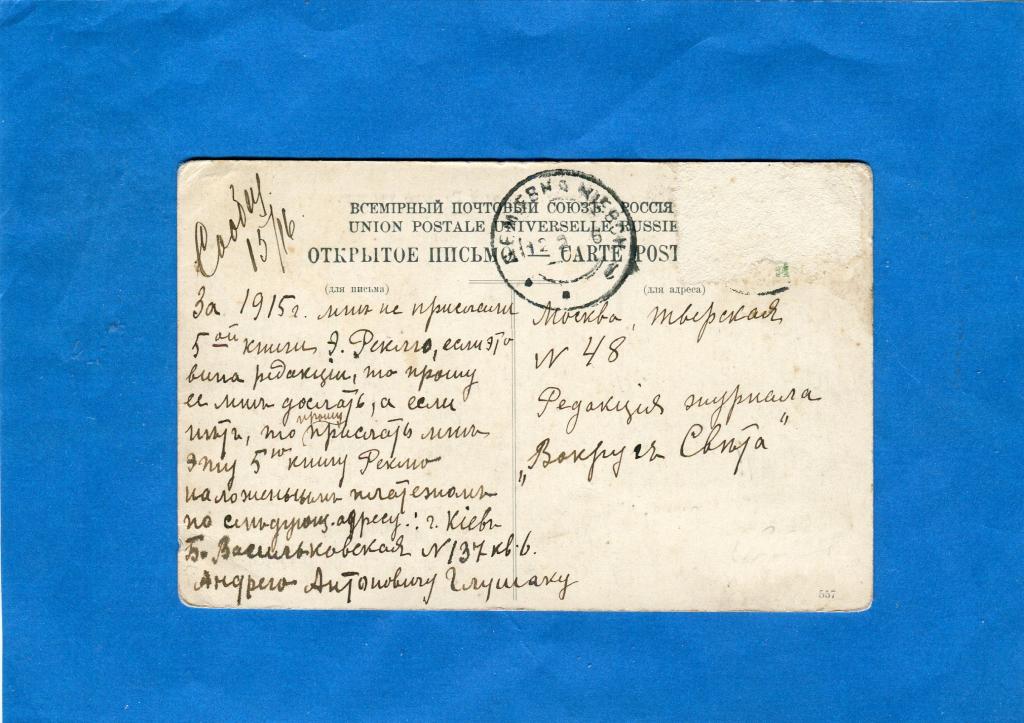 Сообщ.
15/16
ВСЕМІРНЫЙ ПОЧТОВЫЙ СОЮЗЪ РОССІЯ
UNION POSTALE UNIVERSELLE RUSSIE
ОТКРЫТОЕ ПИСЬМО — CARTE POST
(для письма)
(для адреса)
За 1915 г. мнѣ не прислали
5ой книги Э. Реклю, если это
вина редакціи, то прошу
ее мнѣ дослать, а если
нѣтъ, то прошу прислать мнѣ
эту 5ю книгу Реклю
наложеннымъ платежомъ
по слѣдующ. адресу.: г. Кіевъ
Б.-Васильковская N 137 кв. 6.
Андрею Антоновичу Глушаку
Москва, Тверская
N 48
Редакція журнала
„Вокругъ Свѣта"
557